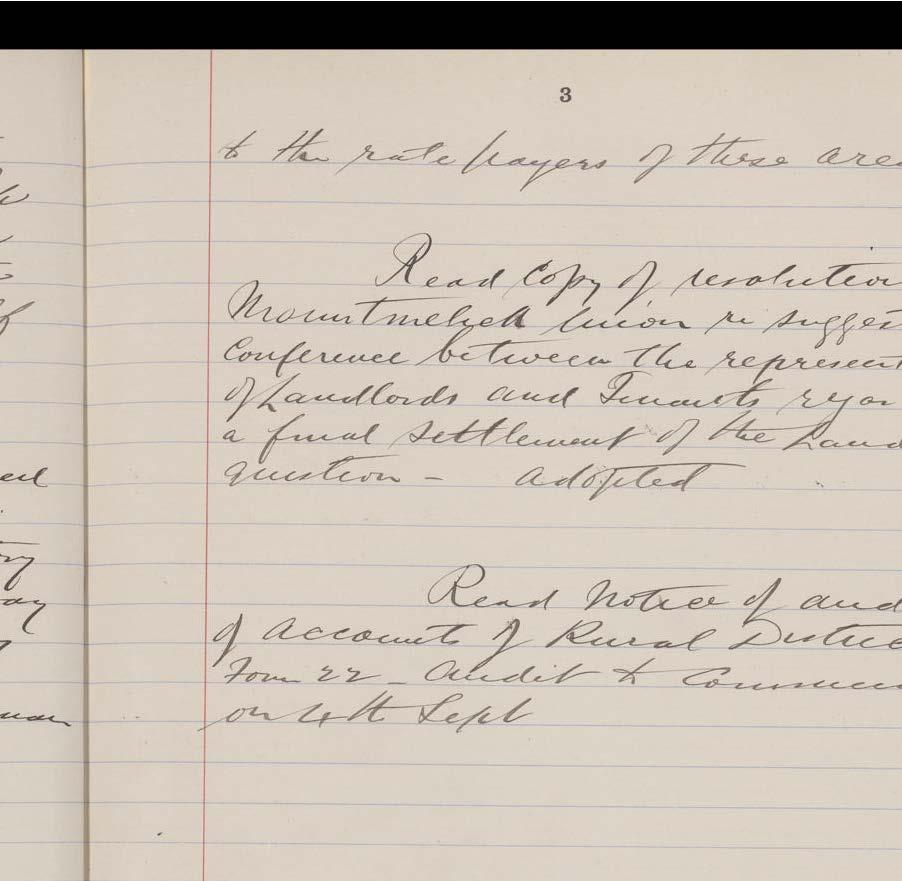 3
to the rate payers of these area
Read Copy of resolution
Mountmellick Union re sugges
Conference between the represent
of Landlords and Tenants re
a final settlement of the Land
question - adopted
Read Notice of aud
of accounts of Rural Distric
Form 22 - Audit to Commen
on 4th Sept